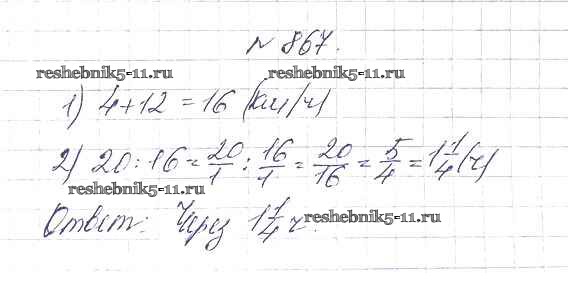 № 867.
reshebnik5-11.ru reshebnik5-11.ru
1) 4+12 = 16 (км/ч)
2) 20 : 16 = 20/1 : 16/1 = 20/16 = 5/4 = 1 1/4 (ч)
reshebnik5-11.ru
Ответ: Через 1 1/4 ч. reshebnik5-11.ru